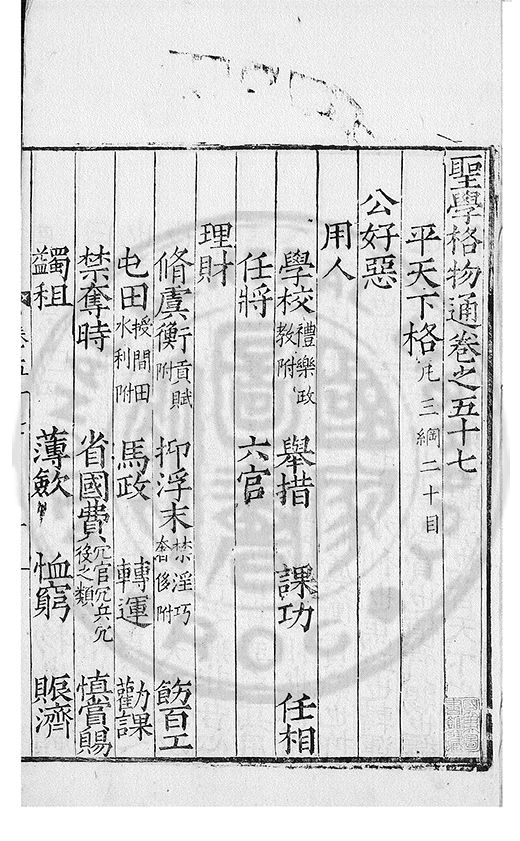 聖學格物通卷之五十七
平天下格 凡三綱二十目
公好惡
用人
學校 禮樂政教附 舉措 課功 任相
任將 六官
理財
脩虞衡 貢賦附 抑浮末 禁淫巧奢侈附 飭百工
屯田 授閒田水利附 馬政 轉運 勸課
禁奪時 省國費 冗官冗兵冗役之類 慎賞賜
蠲租 薄斂 恤窮 賑濟